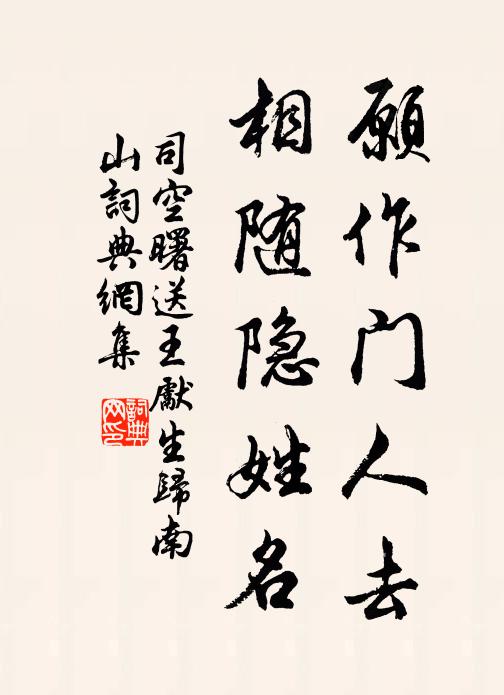 願作门人去
相随隐姓名
司空曙送王獻生歸南
山詞典網集
詞典
网印